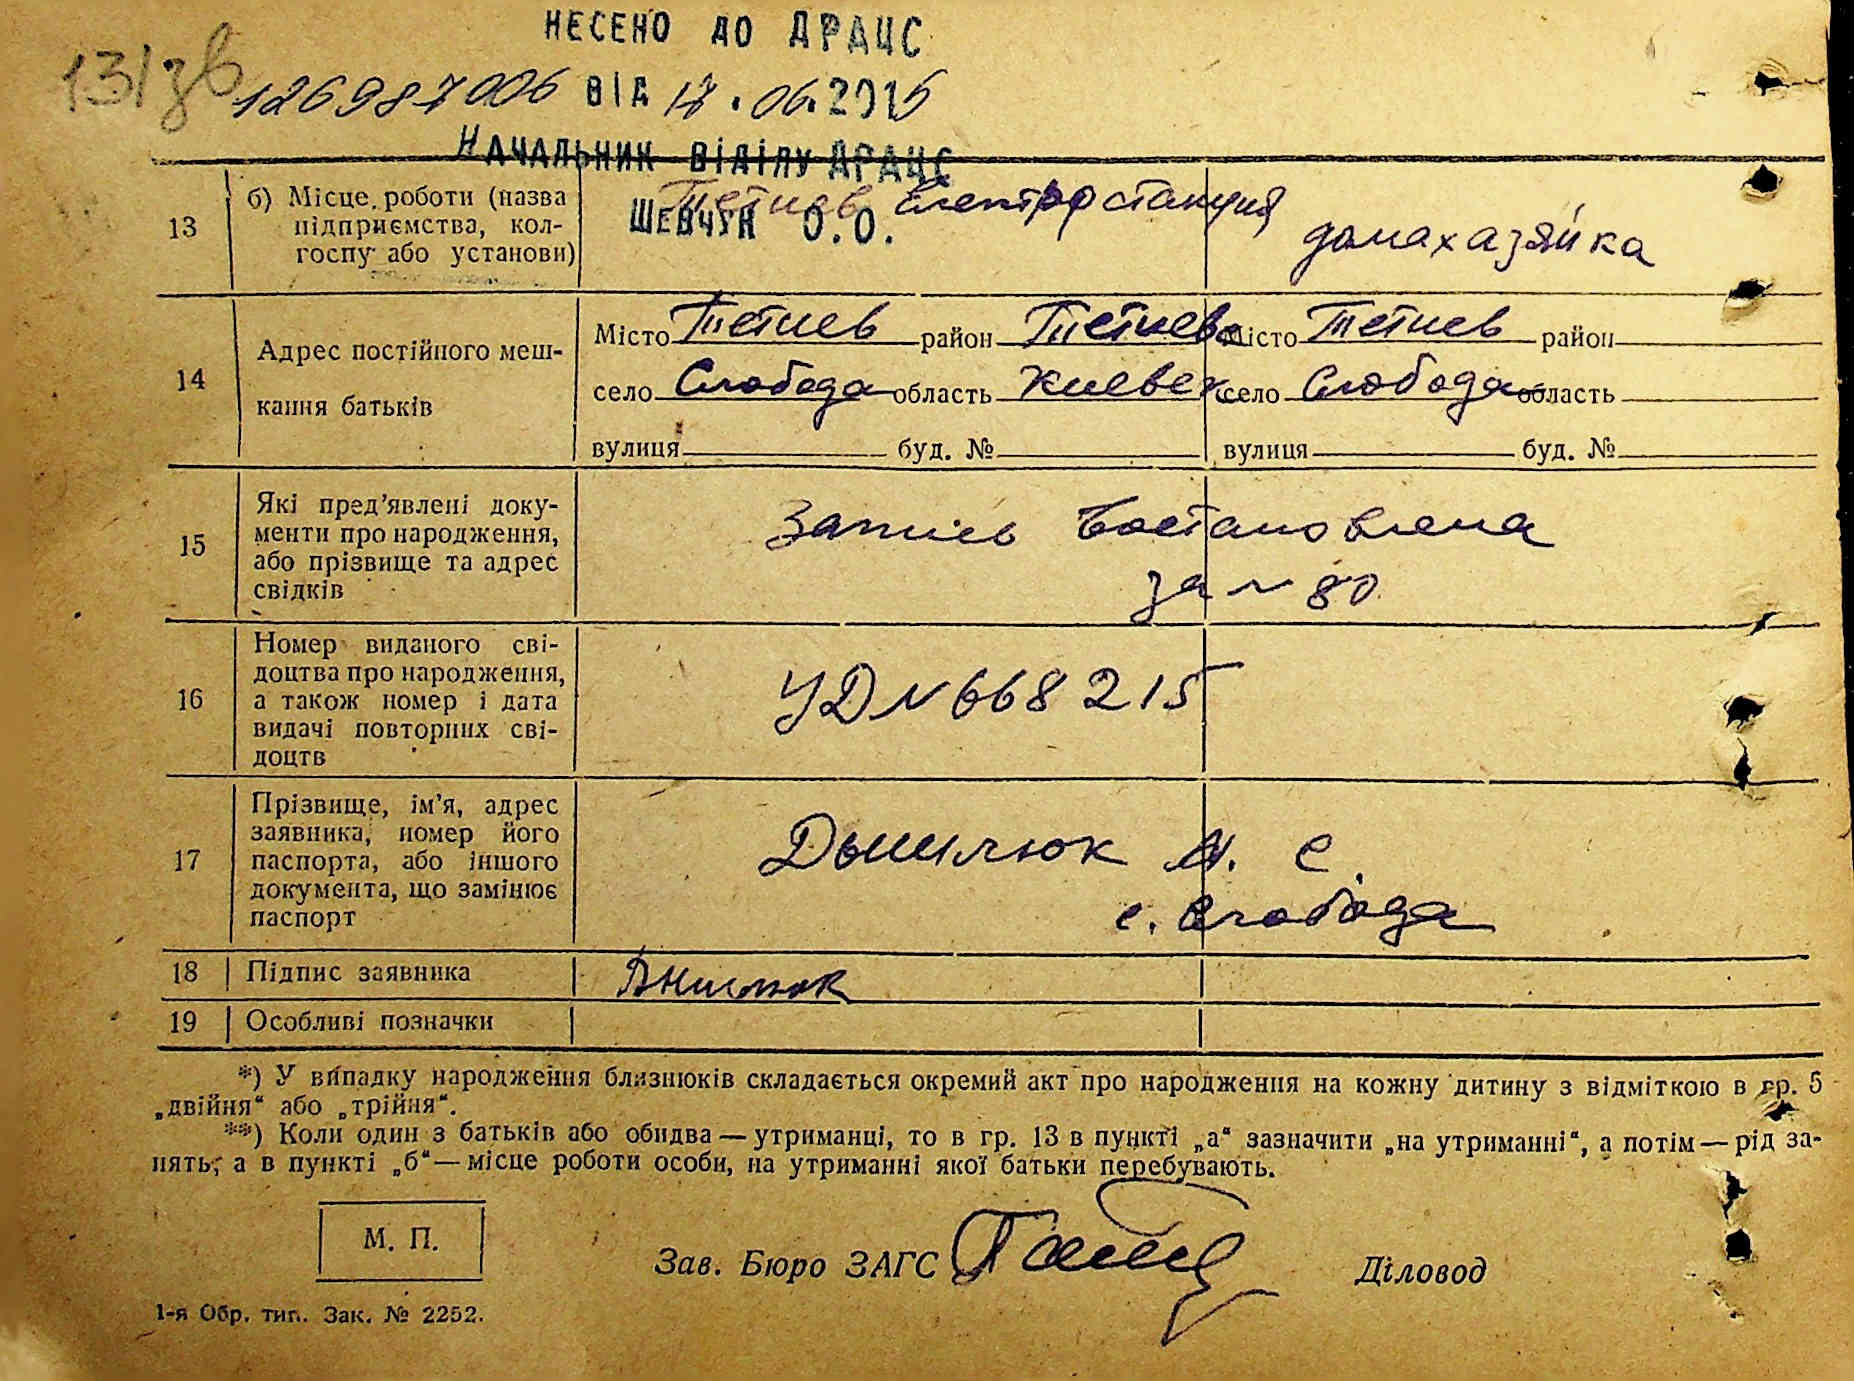 НЕСЕНО ДО ДРАЦС
131зв
126987006 ВІД 17.06.2015
НАЧАЛЬНИК ВІДІЛУ ДРАЦС
ШЕВЧУК О.О.
13 б) Місце роботи (назва підприємства, кол-
госпу або установи)
Тетиев Електростанция
домахазяйка
14 Адрес постійного меш-
кання батьків
Місто Тетиев район Тетиев Місто Тетиев район
село Слобода область Киевск село Слобода область
вулиця буд. № вулиця буд. №
15 Які пред'явлені доку-
менти про народження,
або прізвище та адрес
свідків
Запись Востановлена
за № 80
16 Номер виданого сві-
доцтва про народження,
а також номер і дата
видачі повторних сві-
доцтв
УД № 668215
17 Прізвище, ім'я, адрес
заявника, номер його
паспорта, або іншого
документа, що замінює
паспорт
с. Слобода
18 Підпис заявника
19 Особливі позначки
*) У випадку народження близнюків складається окремий акт про народження на кожну дитину з відміткою в гр. 5
„двійня“ або „трійня“.
**) Коли один з батьків або обидва — утриманці, то в гр. 13 в пункті „а“ зазначити „на утриманні“, а потім — рід за-
нять, а в пункті „б“ — місце роботи особи, на утриманні якої батьки перебувають.
М. П.
Зав. Бюро ЗАГС Діловод
1-я Обр. тип. Зак. № 2252.